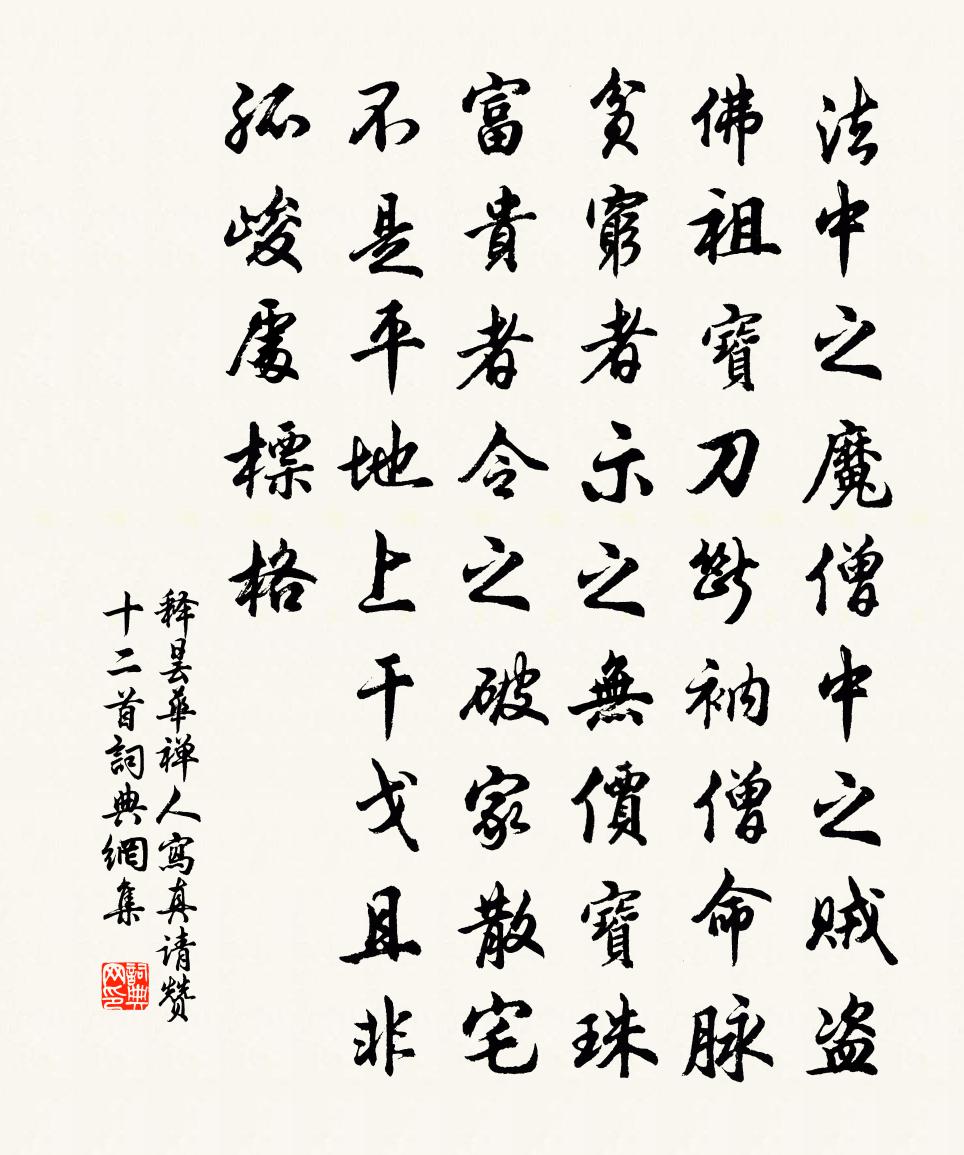 法中之魔僧中之賊盗
佛祖寶刀斷衲僧命脉
貧窮者示之無價寶珠
富貴者令之破家散宅
不是平地上干戈且非
孤峻處標格
释曇華禅人寫真请赞
十二首詞典網集
詞典
网印